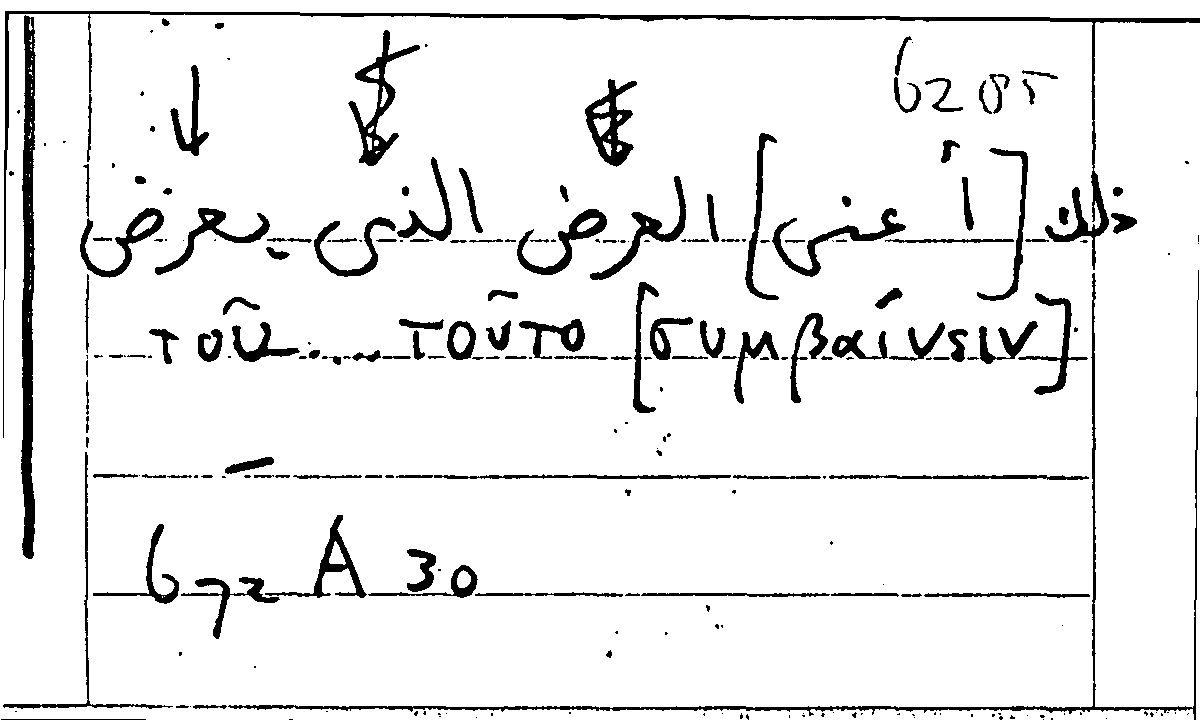 ذلك [أعنى] العرض الذى يعرض
τοῦ .... τοῦτο [συμβαίνειν]
672 A 30